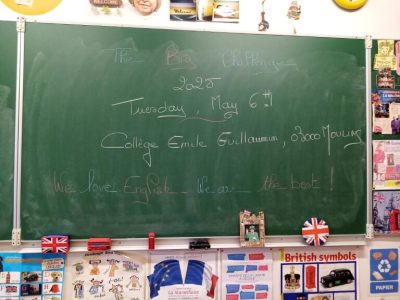 The Big Challenge
2025
Tuesday, May 6th!
Collège Emile Guillaumin, 03000 Moulins
We love English. We are the best!
British symbols
PAPIER